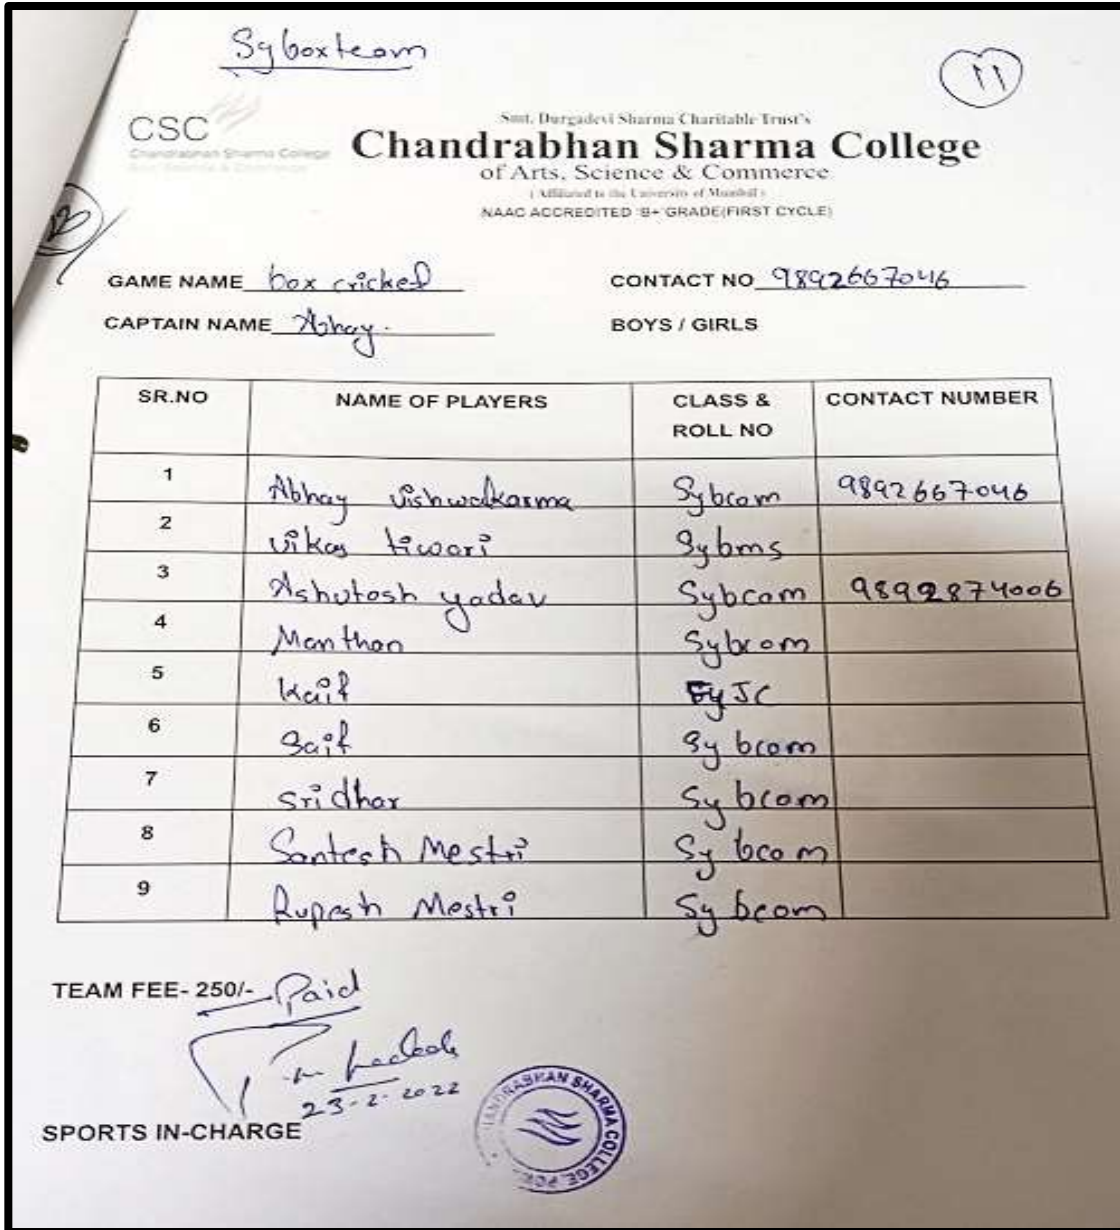 Syboxteam
11
CSC
Chandrabhan Sharma College
Smt. Durgadevi Sharma Charitable Trust's
Chandrabhan Sharma College
of Arts, Science & Commerce
(Affiliated to the University of Mumbai)
NAAC ACCREDITED 'B+' GRADE(FIRST CYCLE)
GAME NAME box cricket CONTACT NO 9892667046
CAPTAIN NAME Abhay. BOYS / GIRLS
SR.NO NAME OF PLAYERS CLASS & ROLL NO CONTACT NUMBER
1 Abhay vishwakarma Sybcom 9892667046
2 vikas tiwari Sybms
3 Ashutosh yadav Sybcom 9892874006
4 Manthan Sybcom
5 Kaif FyJC
6 Saif Sy bcom
7 Sridhar Sy bcom
8 Santesh Mestri Sy bcom
9 Rupesh Mestri Sy bcom
TEAM FEE- 250/- Paid
23-2-2022
SPORTS IN-CHARGE
CHANDRABHAN SHARMA COLLEGE,